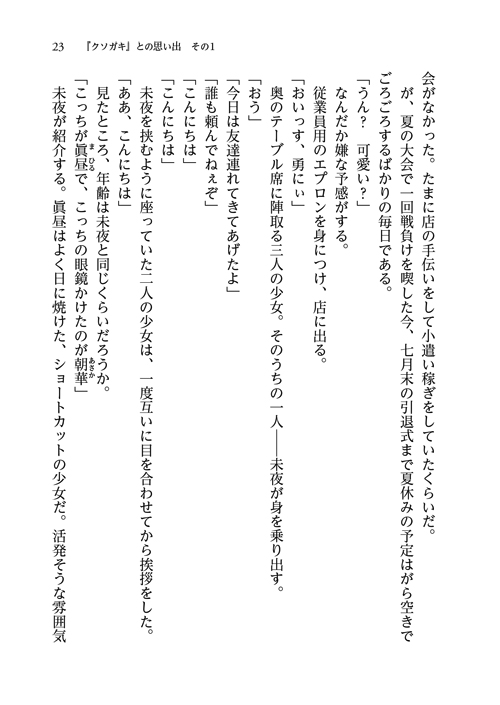 23　『クソガキ』との思い出　その1
会がなかった。たまに店の手伝いをして小遣い稼ぎをしていたくらいだ。
　が、夏の大会で一回戦負けを喫した今、七月末の引退式まで夏休みの予定はがら空きで
ごろごろするばかりの毎日である。
「うん？　可愛い？」
　なんだか嫌な予感がする。
　従業員用のエプロンを身につけ、店に出る。
「おいっす、勇にぃ」
　奥のテーブル席に陣取る三人の少女。そのうちの一人――未夜が身を乗り出す。
「おう」
「今日は友達連れてきてあげたよ」
「誰も頼んでねぇぞ」
「こんにちは」
「こんにちは」
　未夜を挟むように座っていた二人の少女は、一度互いに目を合わせてから挨拶をした。
「ああ、こんにちは」
　見たところ、年齢は未夜と同じくらいだろうか。
「こっちが眞昼まひるで、こっちの眼鏡かけたのが朝華あさか」
　未夜が紹介する。眞昼はよく日に焼けた、ショートカットの少女だ。活発そうな雰囲気